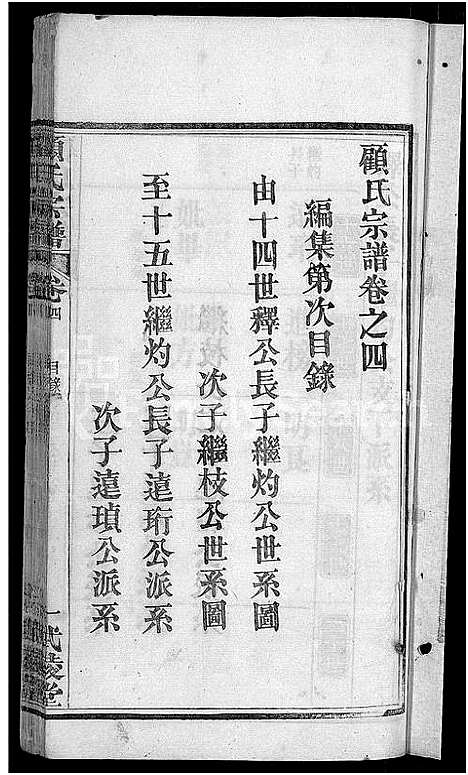 顧氏宗譜卷之四
編集第次目錄
由十四世釋公長子繼灼公世系圖
次子繼枝公世系圖
至十五世繼灼公長子遠珩公派系
次子遠瑱公派系
顧氏宗譜
卷四
目錄
一
武陵堂